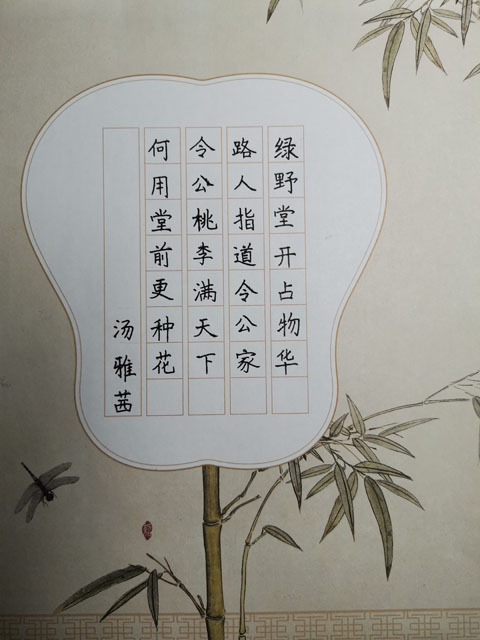 绿野堂开占物华
路人指道令公家
令公桃李满天下
何用堂前更种花
汤雅茜